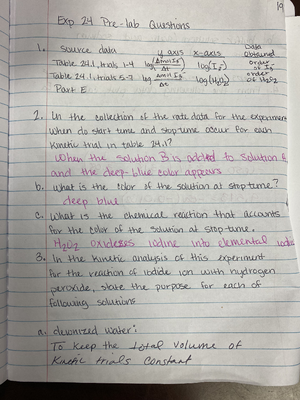 19
Exp 24 Pre-lab Questions
1. source data y axis x-axis Data Obtained
Table 24.1, trials 1-4 log(Δmol I3-/Δt) log[I-] order of I-
Table 24.1, trials 5-7 log Δmol I3-/Δt log[H2O2] order of H2O2
Part E
2. In the collection of the rate data for the experiment
when do start time and stop time occur for each
kinetic trial in table 24.1?
When the solution B is added to solution
and the deep-blue color appears
b. what is the color of the solution at stop time?
deep blue
c. What is the chemical reaction that accounts
for the color of the solution at stop time.
H2O2 oxideses iodine into elemental
3. In the kinetic analysis of this experiment
for the reaction of iodide ion with hydrogen
peroxide, state the purpose for each of
following solutions
a. deionized water:
To keep the total volume of
Kinetic trials constant